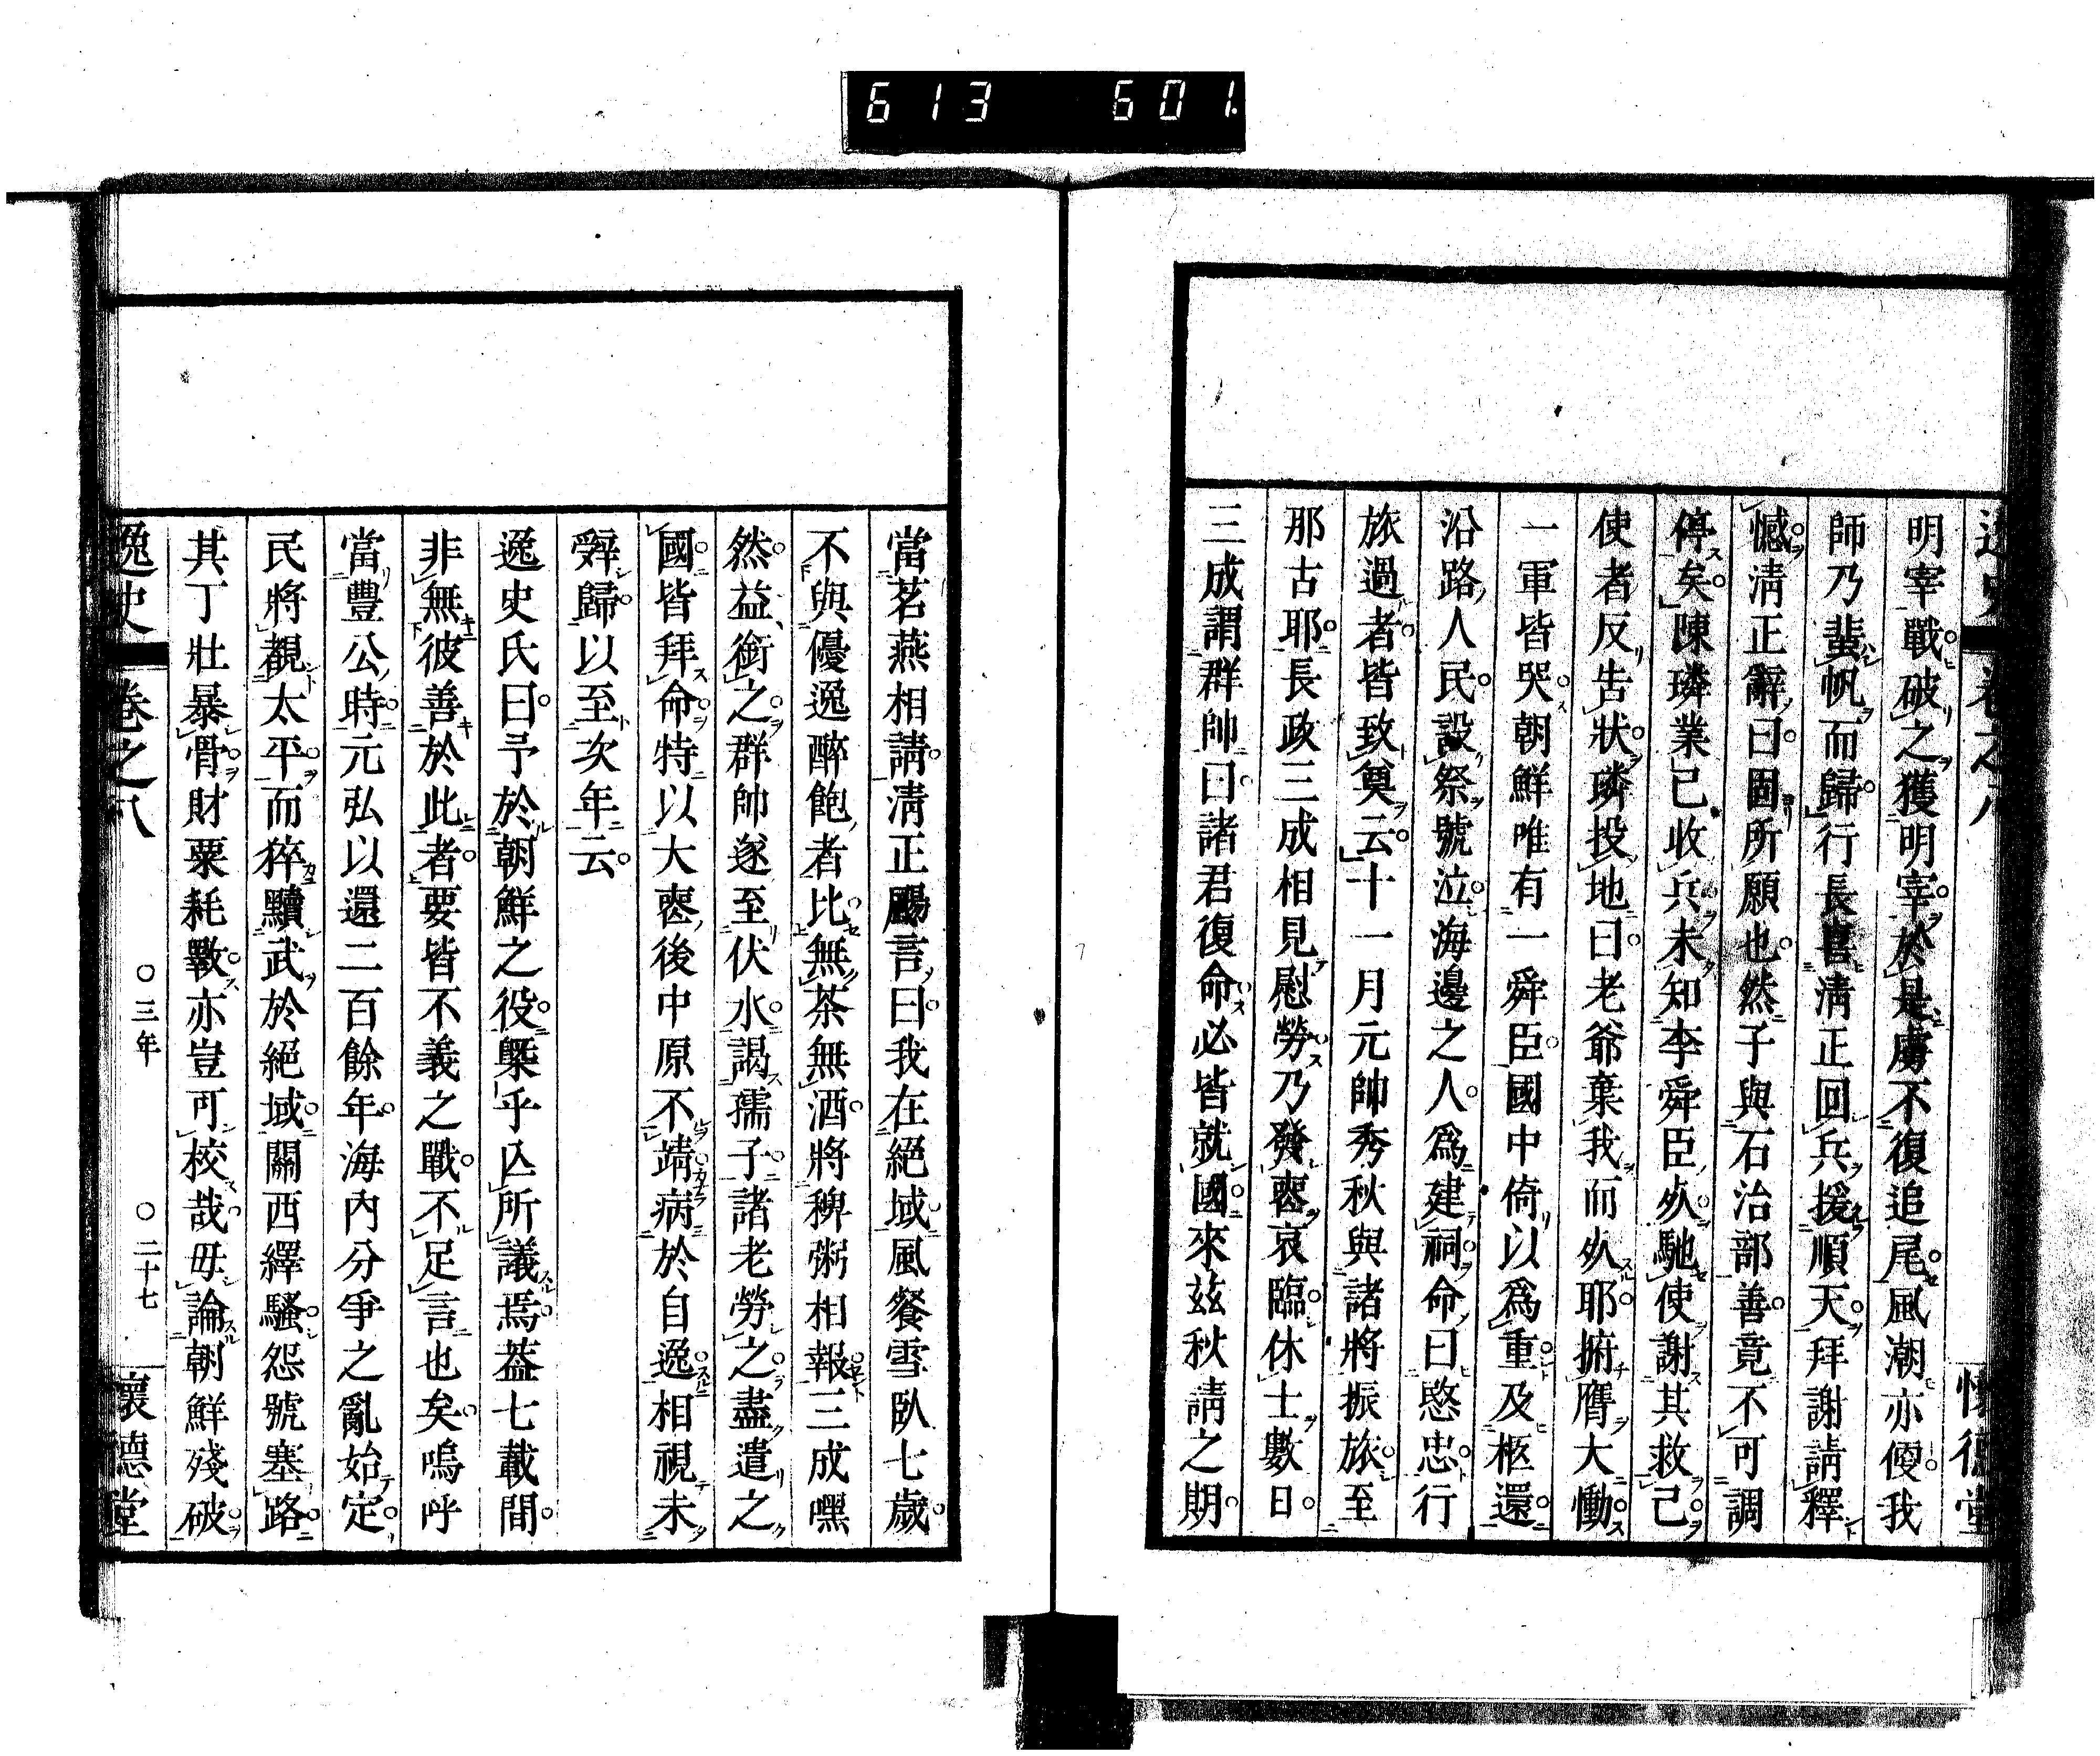 613 601.
逸史 卷之八 懷德堂
明宰戰破之獲明宰於是虜不復追尾風潮亦便我
師乃蜚帆而歸行長喜淸正回兵援順天拜謝請釋
憾淸正辭曰固所願也然子與石治部善竟不可調
停矣陳璘業已收兵未知李舜臣死馳使謝其救己
使者反告狀璘投地曰老爺棄我而死耶擗膺大慟
一軍皆哭朝鮮唯有一舜臣國中倚以爲重及柩還
沿路人民設祭號泣海邊之人爲建祠命曰愍忠行
旅過者皆致奠云十一月元帥秀秋與諸將振旅至
那古耶長政三成相見慰勞乃發喪哀臨休士數日
三成謂群帥曰諸君復命必皆就國來茲秋請之期
當茗燕相請淸正颺言曰我在絕域風餐雪臥七歲
不與優逸醉飽者比無茶無酒將稗粥相報三成嘿
然益銜之群帥遂至伏水謁孺子諸老勞之盡遣之
國皆拜命特以大喪後中原不靖病於自逸相視未
辭歸以至次年云
逸史氏曰予於朝鮮之役槩乎亾所議焉蓋七載間
非無彼善於此者要皆不義之戰不足言也矣嗚呼
當豐公時元弘以還二百餘年海內分爭之亂始定
民將覩太平而猝黷武於絕域關西繹騷怨號塞路
其丁壯暴骨財粟耗斁亦豈可校哉毋論朝鮮殘破
逸史 卷之八 ○三年 ○二十七 懷德堂